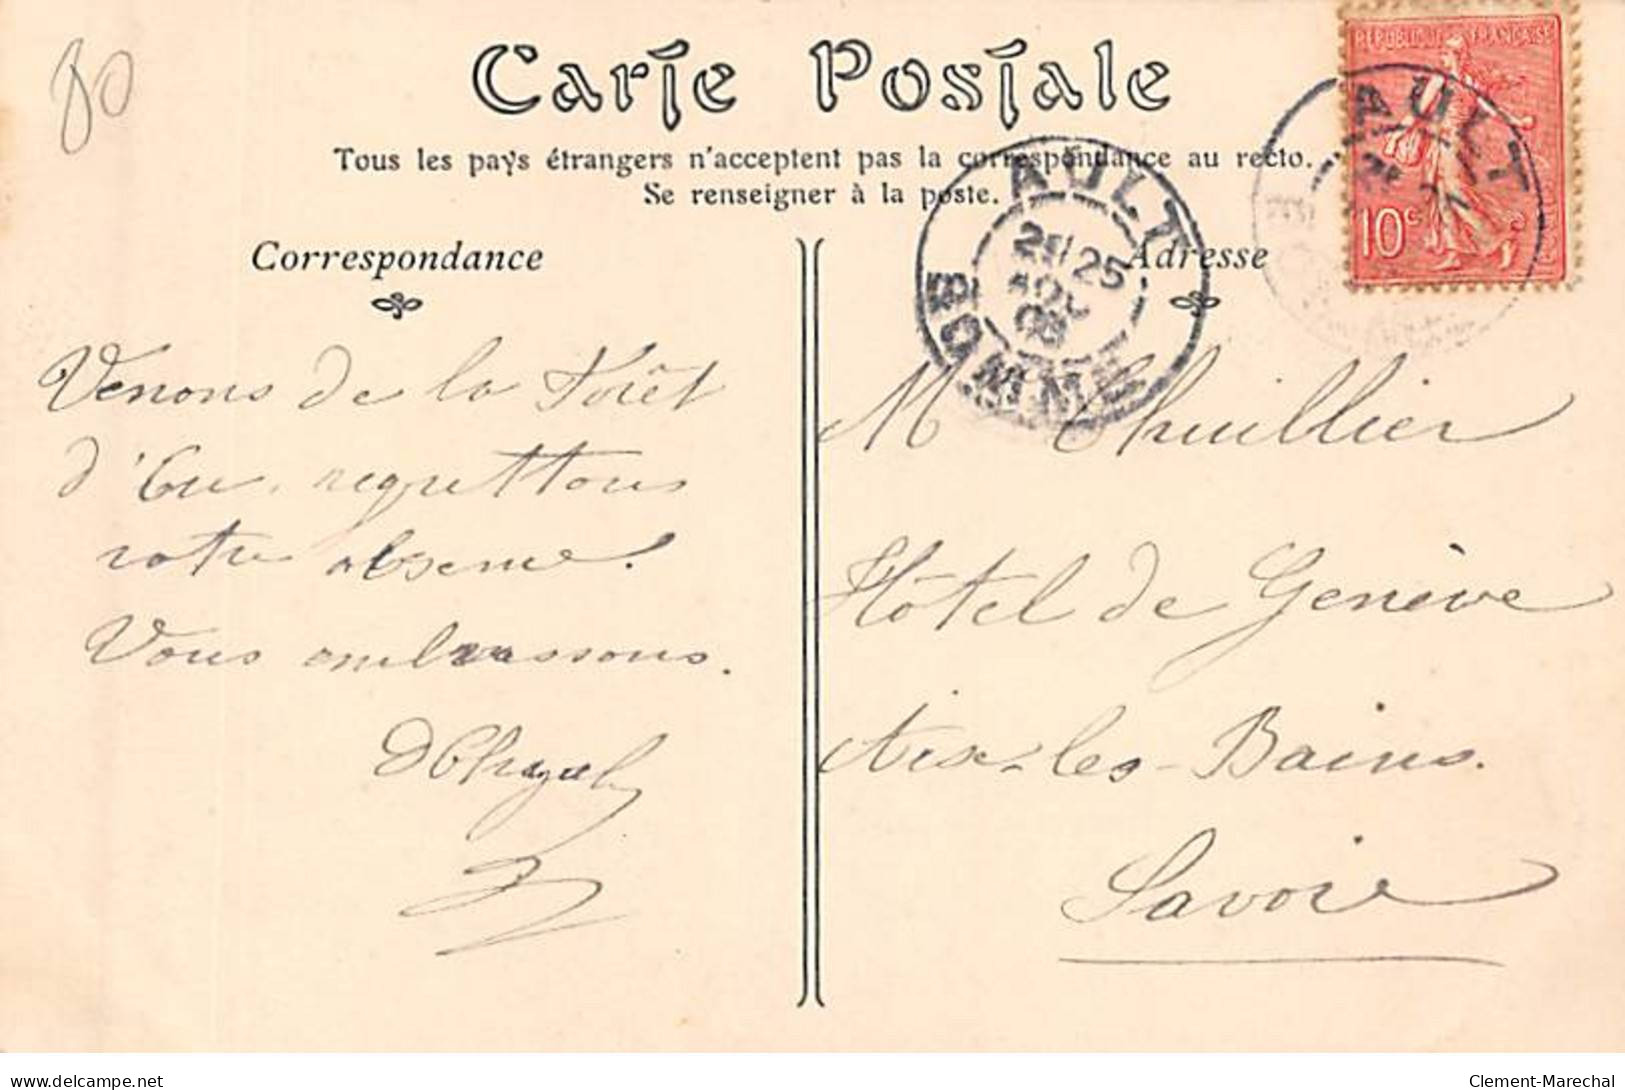 80
Carte Postale
Tous les pays étrangers n'acceptent pas la correspondance au recto.
Se renseigner à la poste.
RÉPUBLIQUE FRANÇAISE
10c
AULT
AULT
25
AOU
08
SOMME
Correspondance
Adresse
Venons de la Forêt
d'Eu, regrettons
votre absence.
Vous embrassons.
M Thuillier
Hôtel de Genève
Aix-les-Bains.
Savoie
delcampe.net
Clement-Marechal